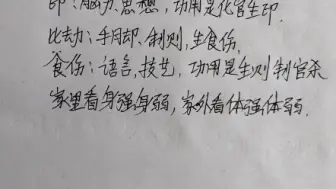 印：脑力、思想，功用是化官生印.
比劫：手足却、制则，生食伤，
食伤：语言，技艺，功用是生则制官杀
家里看身强身弱，家外看体强体弱.